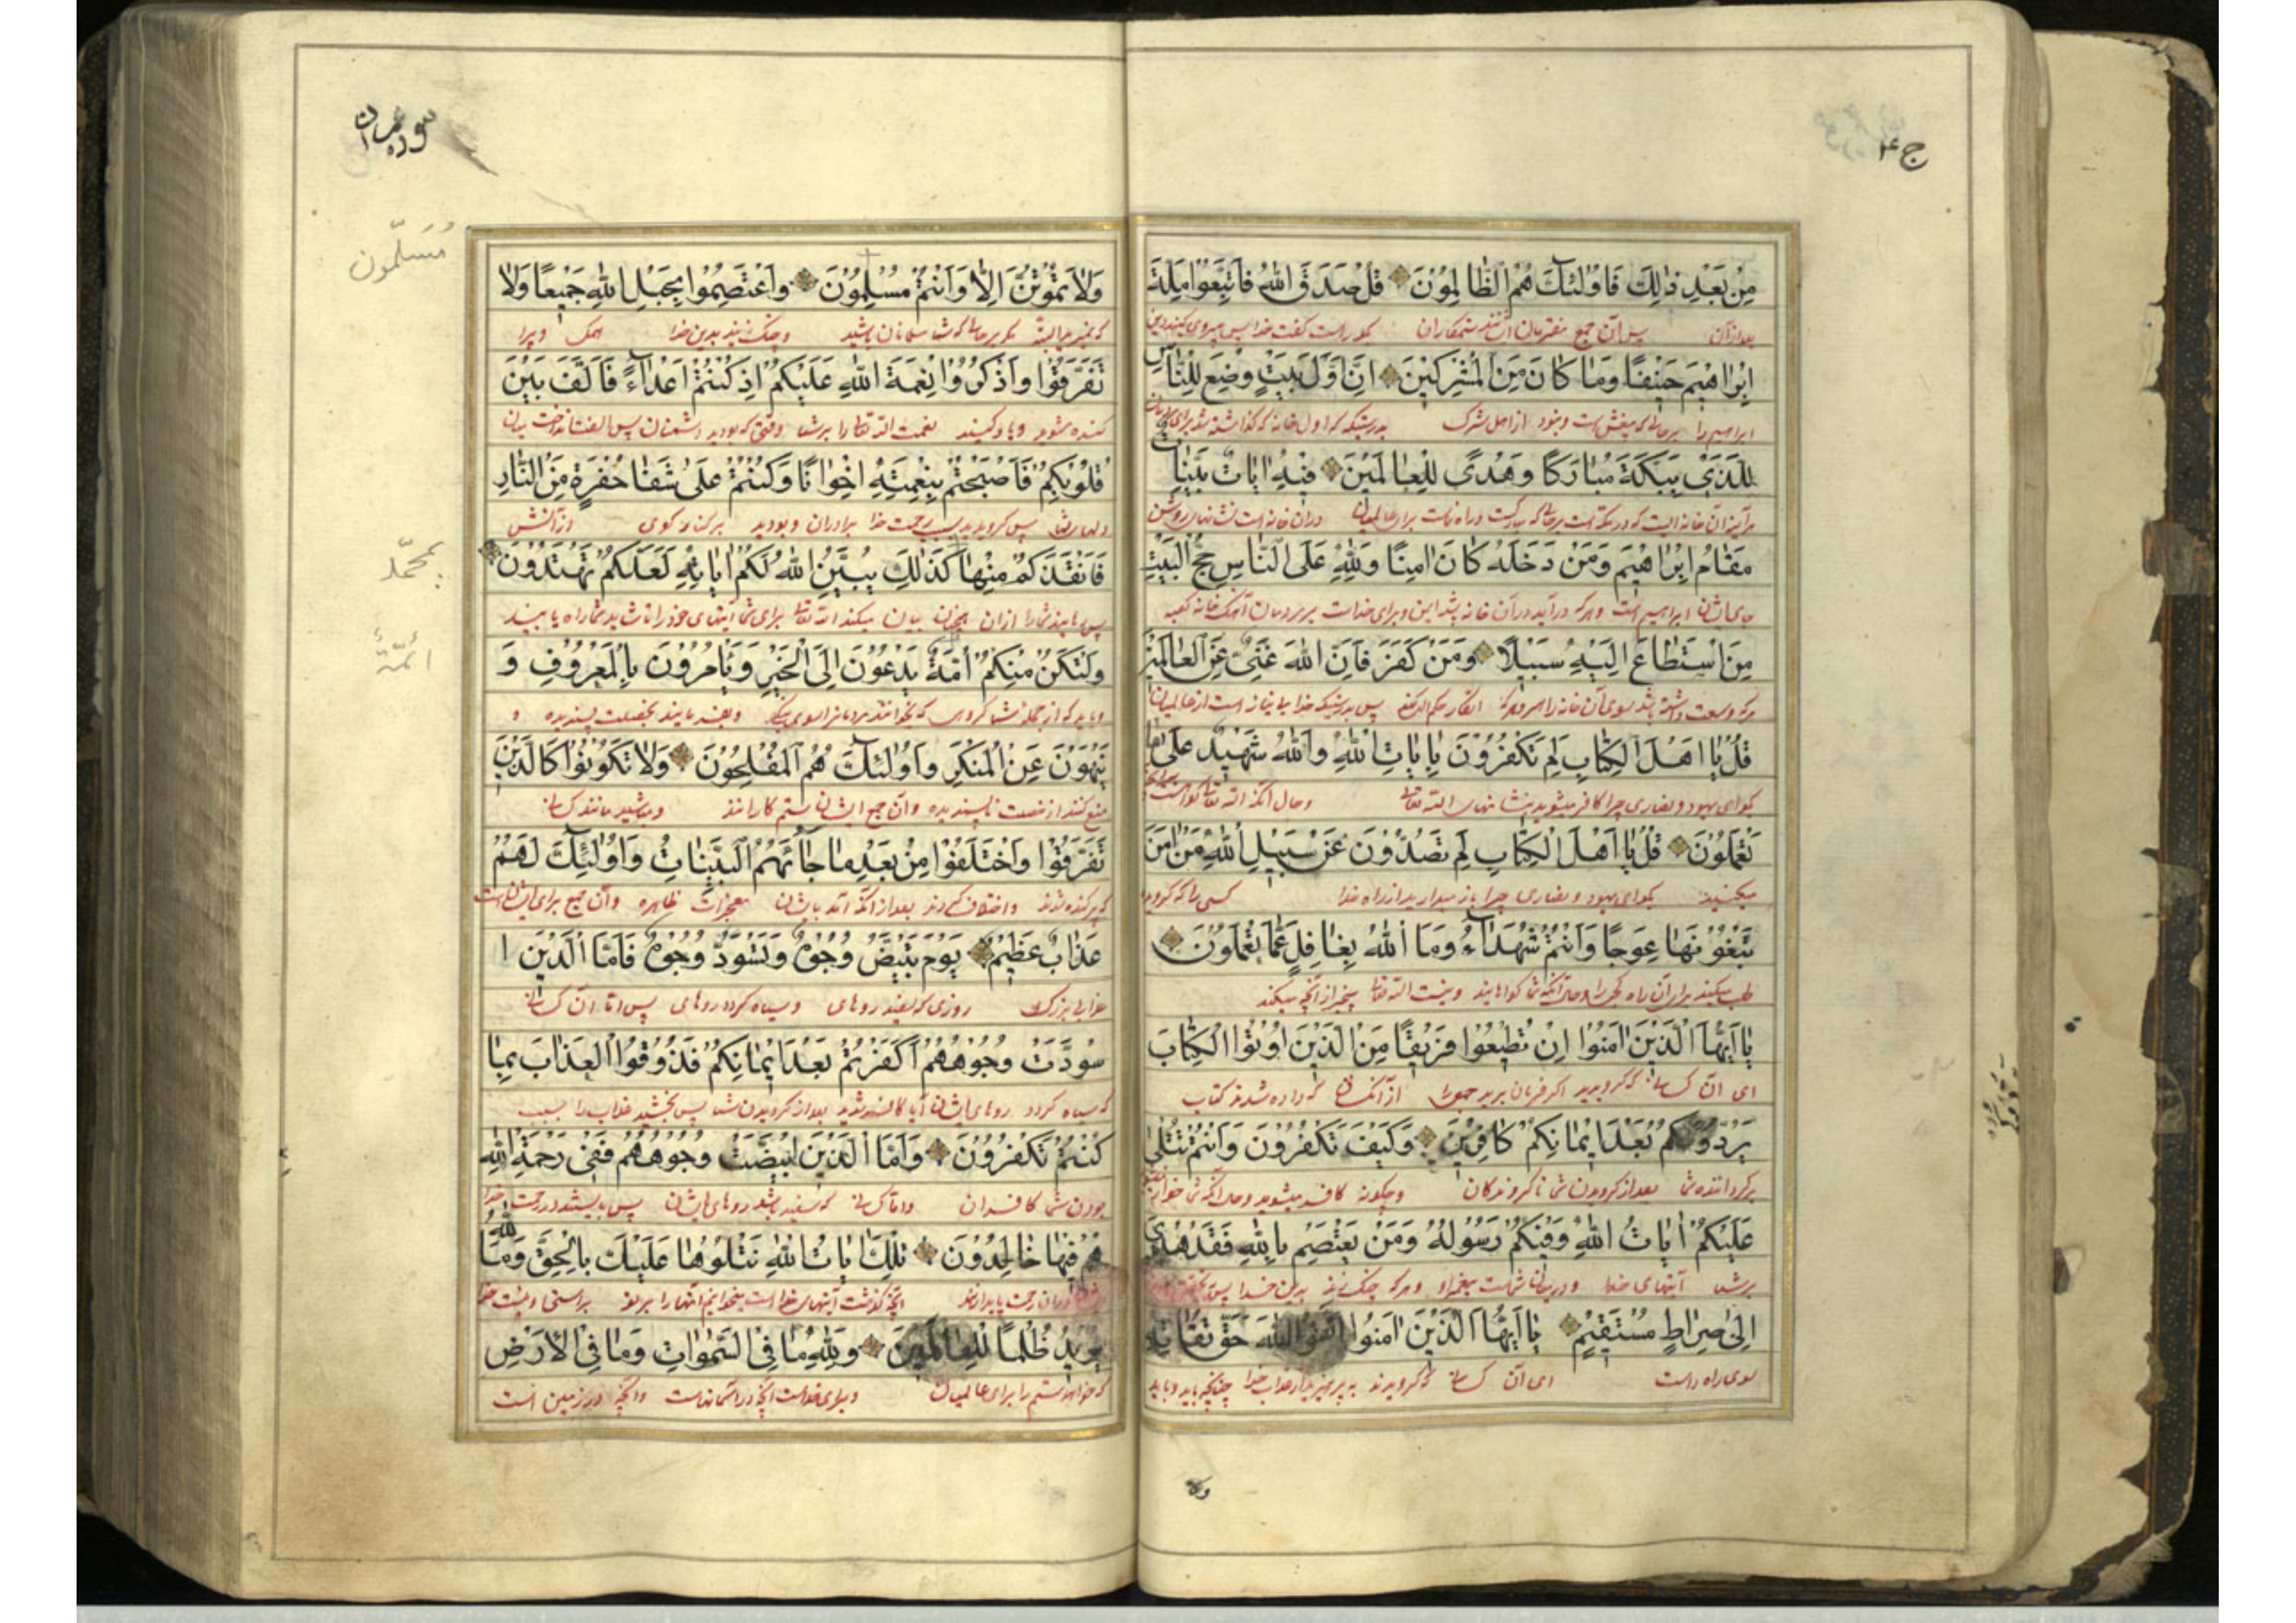 ج ۴
مِنْ بَعْدِ ذٰلِكَ فَاُولٰئِكَ هُمُ الظّٰالِمُونَ قُلْ صَدَقَ اللّٰهُ فَاتَّبِعُوا مِلَّةَ
بعد از آن پس آن جمع مفتریان ایشانند ستمکاران بگو راست گفت خدا پس پیروی کنید دین
اِبْرٰاهِيمَ حَنِيفًا وَمٰا كٰانَ مِنَ الْمُشْرِكِينَ اِنَّ اَوَّلَ بَيْتٍ وُضِعَ لِلنّٰاسِ
ابراهیم را برحالی که بیغش است و نبود از اهل شرک بدرستیکه اول خانه که گذاشته شد برای مردمان
لَلَّذِي بِبَكَّةَ مُبٰارَكًا وَهُدًى لِلْعٰالَمِينَ فِيهِ اٰيٰاتٌ بَيِّنٰاتٌ
هر آینه آن خانه ایست که در مکه است برحالی که مبارکست و راه نماست برای عالمیان در آن خانه است نشانهای روشن
مَقٰامُ اِبْرٰاهِيمَ وَمَنْ دَخَلَهُ كٰانَ اٰمِنًا وَلِلّٰهِ عَلَى النّٰاسِ حِجُّ الْبَيْتِ
جای ایشان ابراهیم است و هر که درآید در آن خانه باشد ایمن و برای خداست بر مردمان آهنگ خانه کعبه
مَنِ اسْتَطٰاعَ اِلَيْهِ سَبِيلًا وَمَنْ كَفَرَ فَاِنَّ اللّٰهَ غَنِيٌّ عَنِ الْعٰالَمِينَ
هر که وسعت داشته باشد بسوی آن خانه راه و هر که انکار حکم الله کند پس بدرستیکه خدا بی نیاز است از عالمیان
قُلْ يٰا اَهْلَ الْكِتٰابِ لِمَ تَكْفُرُونَ بِاٰيٰاتِ اللّٰهِ وَاللّٰهُ شَهِيدٌ عَلٰى مٰا
بگو ای یهود و نصاری چرا کافر میشوید بنشانهای الله تعالی و حال آنکه الله تعالی گواه است
تَعْمَلُونَ قُلْ يٰا اَهْلَ الْكِتٰابِ لِمَ تَصُدُّونَ عَنْ سَبِيلِ اللّٰهِ مَنْ اٰمَنَ
میکنید بگو ای یهود و نصاری چرا باز میدارید از راه خدا کسی را که گروید
تَبْغُونَهٰا عِوَجًا وَاَنْتُمْ شُهَدٰاءُ وَمَا اللّٰهُ بِغٰافِلٍ عَمّٰا تَعْمَلُونَ
طلب میکنید برای آن راه کجی را و حال آنکه شما گواهانید و نیست الله تعالی بیخبر از آنچه میکنید
يٰا اَيُّهَا الَّذِينَ اٰمَنُوا اِنْ تُطِيعُوا فَرِيقًا مِنَ الَّذِينَ اُوتُوا الْكِتٰابَ
ای آن کسانی که گرویدید اگر فرمان برید جمعی را از آنکسان که داده شدند کتاب
يَرُدُّوكُمْ بَعْدَ اِيمٰانِكُمْ كٰافِرِينَ وَكَيْفَ تَكْفُرُونَ وَاَنْتُمْ تُتْلٰى
برگردانند شما بعد از گرویدن شما ناگروندگان و چگونه کافر میشوید و حال آنکه شما خوانده
عَلَيْكُمْ اٰيٰاتُ اللّٰهِ وَفِيكُمْ رَسُولُهُ وَمَنْ يَعْتَصِمْ بِاللّٰهِ فَقَدْ هُدِيَ
بر شما آیتهای خدا و در میان شماست پیغمبر او و هر که چنگ زند بدین خدا پس
اِلٰى صِرٰاطٍ مُسْتَقِيمٍ يٰا اَيُّهَا الَّذِينَ اٰمَنُوا اتَّقُوا اللّٰهَ حَقَّ تُقٰاتِهِ
بسوی راه راست ای آن کسانی که گرویدند بپرهیزید از عذاب خدا چنانچه باید و باید
ولا
سوره عمران
مُسَلّمون
وَلٰا تَمُوتُنَّ اِلّٰا وَاَنْتُمْ مُسْلِمُونَ وَاعْتَصِمُوا بِحَبْلِ اللّٰهِ جَمِيعًا وَلٰا
که نمیرید البته مگر برحالی که شما مسلمانان باشید و چنگ زنید بدین خدا همگی و پرا
تَفَرَّقُوا وَاذْكُرُوا نِعْمَةَ اللّٰهِ عَلَيْكُمْ اِذْ كُنْتُمْ اَعْدٰاءً فَاَلَّفَ بَيْنَ
کنده مشوید و یاد کنید نعمت الله تعالی را بر شما وقتی که بودید دشمنان پس الفت انداخت میان
قُلُوبِكُمْ فَاَصْبَحْتُمْ بِنِعْمَتِهِ اِخْوٰانًا وَكُنْتُمْ عَلٰى شَفٰا حُفْرَةٍ مِنَ النّٰارِ
دلهای شما پس گردیدید بسبب رحمت خدا برادران و بودید بر کنار گوی از آتش
بمحمّد
فَاَنْقَذَكُمْ مِنْهٰا كَذٰلِكَ يُبَيِّنُ اللّٰهُ لَكُمْ اٰيٰاتِهِ لَعَلَّكُمْ تَهْتَدُونَ
پس رهانید شما را از آن همچنان بیان میکند الله تعالی برای شما آیتهای خود را تا شاید شما راه یابید
أئمّة
وَلْتَكُنْ مِنْكُمْ اُمَّةٌ يَدْعُونَ اِلَى الْخَيْرِ وَيَأْمُرُونَ بِالْمَعْرُوفِ وَ
و باید که از جمله شما گروهی که بخوانند مردمانرا بسوی نیکی و بفرمایند بخصلت پسندیده و
يَنْهَوْنَ عَنِ الْمُنْكَرِ وَاُولٰئِكَ هُمُ الْمُفْلِحُونَ وَلٰا تَكُونُوا كَالَّذِينَ
منع کنند از خصلت ناپسندیده و آن جمع ایشان رستم کارانند و مباشید مانند کسانی
تَفَرَّقُوا وَاخْتَلَفُوا مِنْ بَعْدِ مٰا جٰاءَهُمُ الْبَيِّنٰاتُ وَاُولٰئِكَ لَهُمْ
که پرکنده شدند و اختلاف کردند بعد از آنکه آمد بایشان معجزات ظاهره و آن جمع برای ایشان است
عَذٰابٌ عَظِيمٌ يَوْمَ تَبْيَضُّ وُجُوهٌ وَتَسْوَدُّ وُجُوهٌ فَاَمَّا الَّذِينَ ا
عذابی بزرگ روزی که سفید روهای و سیاه گردد روهای پس اما آن کسانی
سْوَدَّتْ وُجُوهُهُمْ اَكَفَرْتُمْ بَعْدَ اِيمٰانِكُمْ فَذُوقُوا الْعَذٰابَ بِمٰا
که سیاه گردد روهای ایشان آیا کافر شدید بعد از گرویدن شما پس بچشید عذاب را بسبب
كُنْتُمْ تَكْفُرُونَ وَاَمَّا الَّذِينَ ابْيَضَّتْ وُجُوهُهُمْ فَفِي رَحْمَةِ اللّٰهِ
بودن شما کافران و اما کسانی که سفید باشد روهای ایشان پس باشند در رحمت خدا
هُمْ فِيهٰا خٰالِدُونَ تِلْكَ اٰيٰاتُ اللّٰهِ نَتْلُوهٰا عَلَيْكَ بِالْحَقِّ وَمَا اللّٰهُ
در آن رحمت پایدارند آنچه گذشت آیتهای خدا است میخوانیم آنها را بر تو براستی و نیست خدا
يُرِيدُ ظُلْمًا لِلْعٰالَمِينَ وَلِلّٰهِ مٰا فِي السَّمٰوٰاتِ وَمٰا فِي الْاَرْضِ
که خواهد ستم را برای عالمیان و برای خداست آنچه در آسمانهاست و آنچه در زمین است